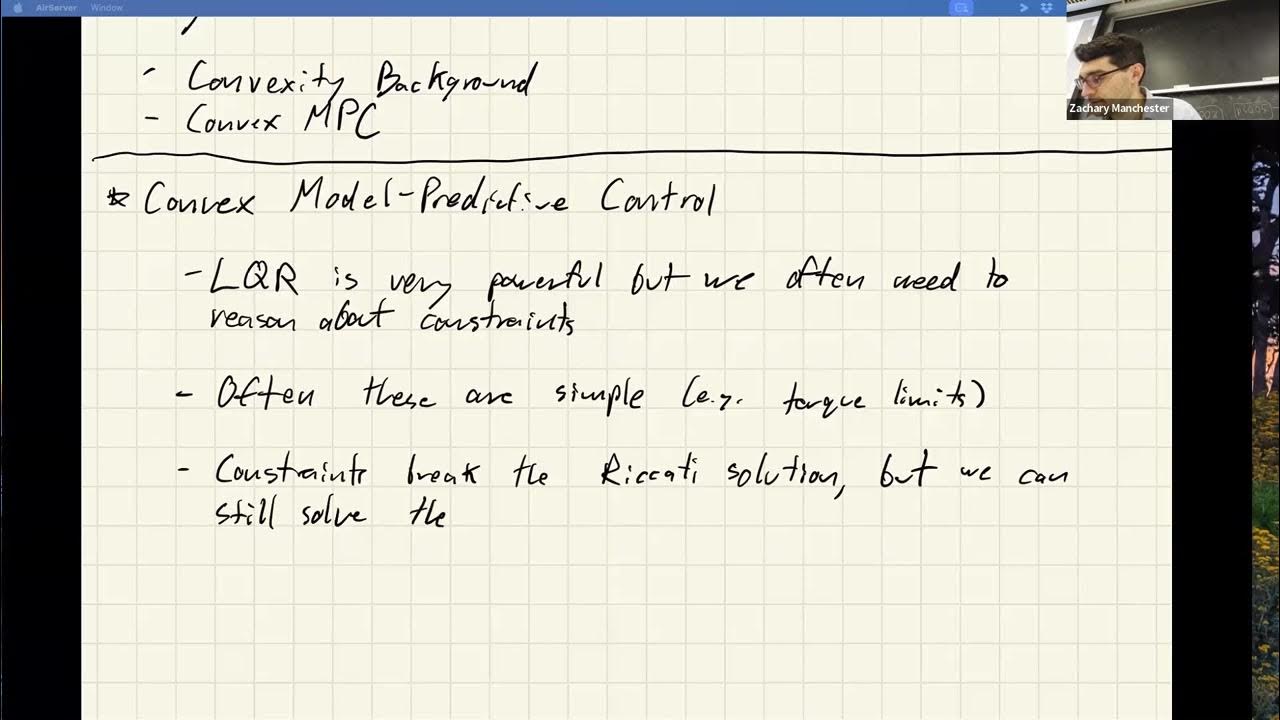 AirServer Window
Zachary Manchester
- Convexity Background
- Convex MPC
* Convex Model-Predictive Control
- LQR is very powerful but we often need to
reason about constraints
- Often these are simple (e.g. torque limits)
- Constraints break the Riccati solution, but we can
still solve the